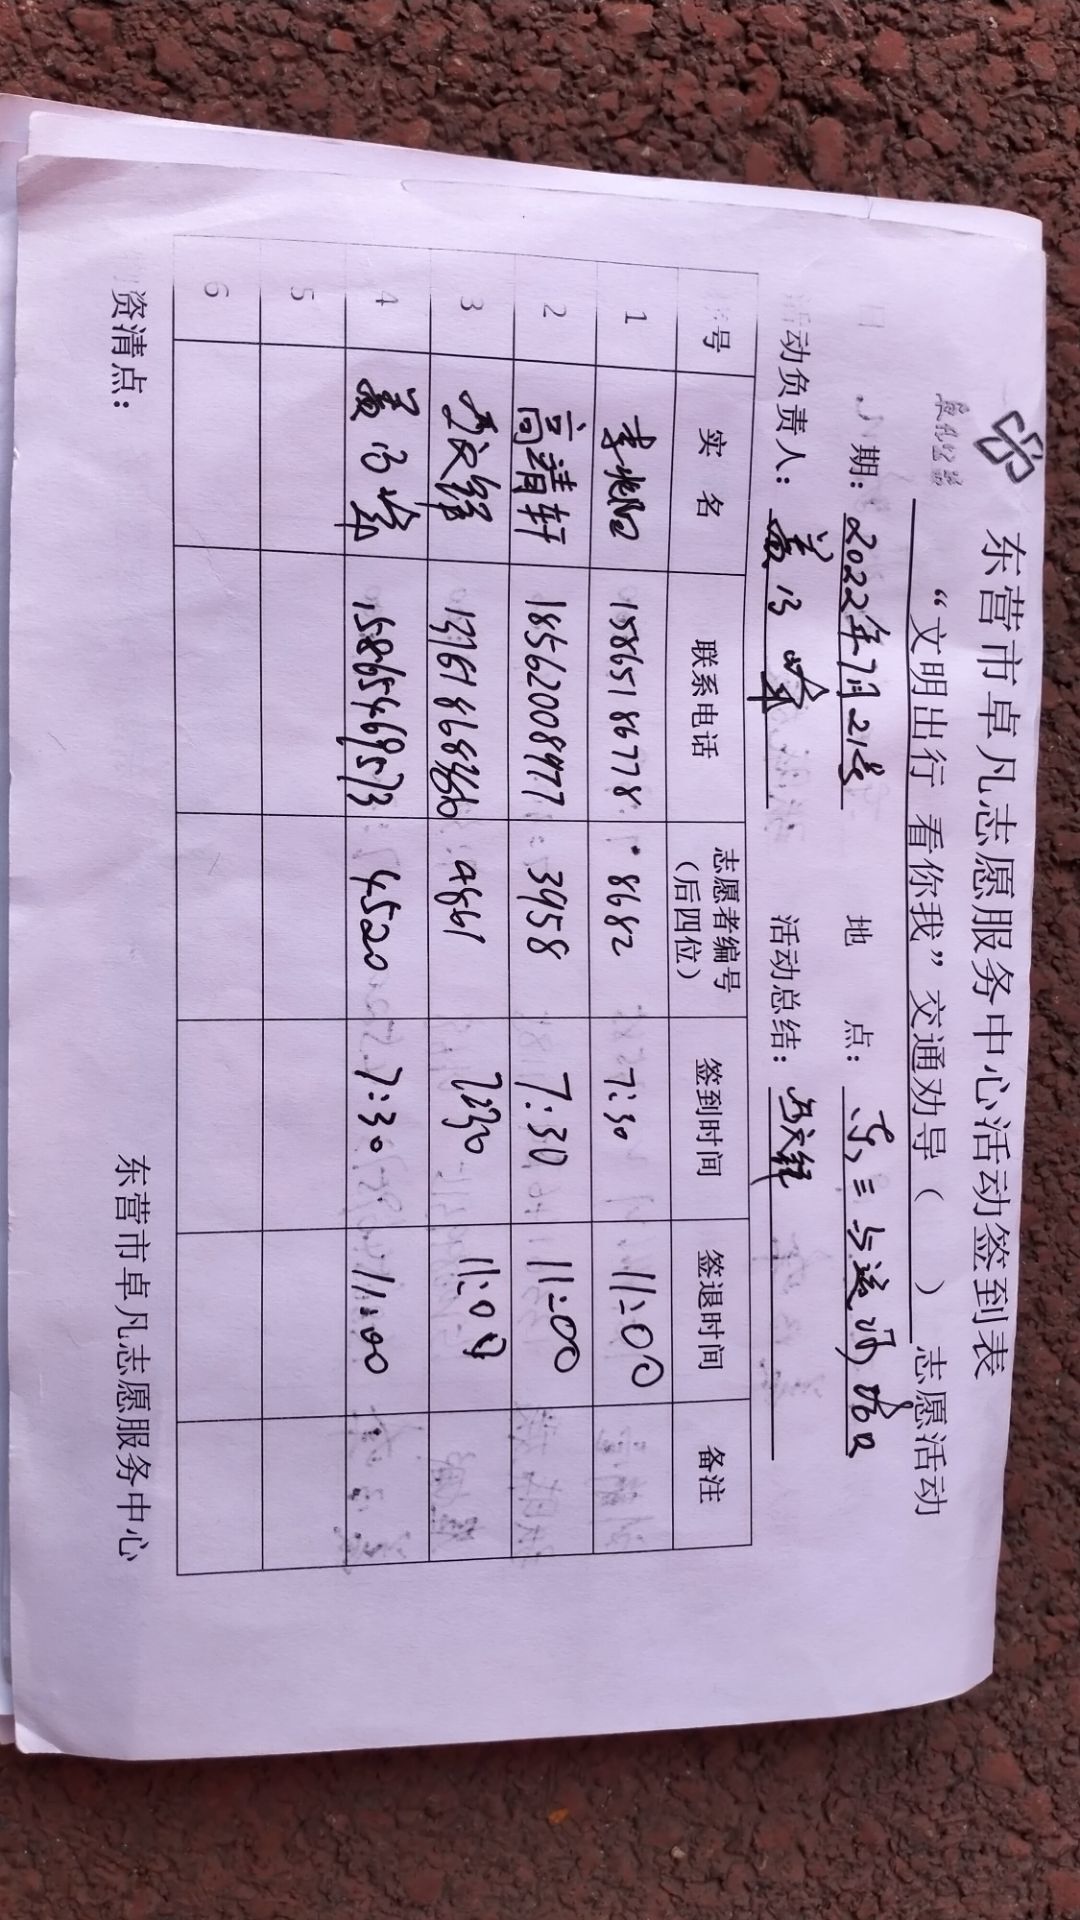 东营市卓凡志愿服务中心活动签到表
“文明出行 看你我”交通劝导（ ）志愿活动
期：2022年7月21号 地 点：东三与运河路口
活动负责人： 活动总结：
号 实 名 联系电话 志愿者编号（后四位） 签到时间 签退时间 备注
1 15865186778 8682 7:30 11:00
2 高靖轩 18562008977 3958 7:30 11:00
3 4861 7:30 11:00
4 15865469573 4520 7:30 11:00
5
6
资清点： 东营市卓凡志愿服务中心